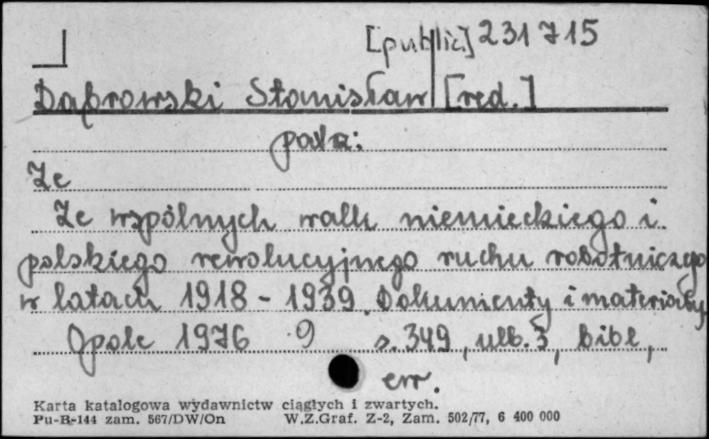 [public.] 231715
Dąbrowski Stanisław [red.]
patrz:
Ze
Ze wspólnych walk niemieckiego i
polskiego rewolucyjnego ruchu robotniczego
w latach 1918 - 1939. Dokumenty i materiały.
Opole 1976 9 s. 349, ulb. 3, bibl,
err.
Karta katalogowa wydawnictw ciągłych i zwartych.
Pu-B-144 zam. 567/DW/On W.Z.Graf. Z-2, Zam. 502/77, 6 400 000